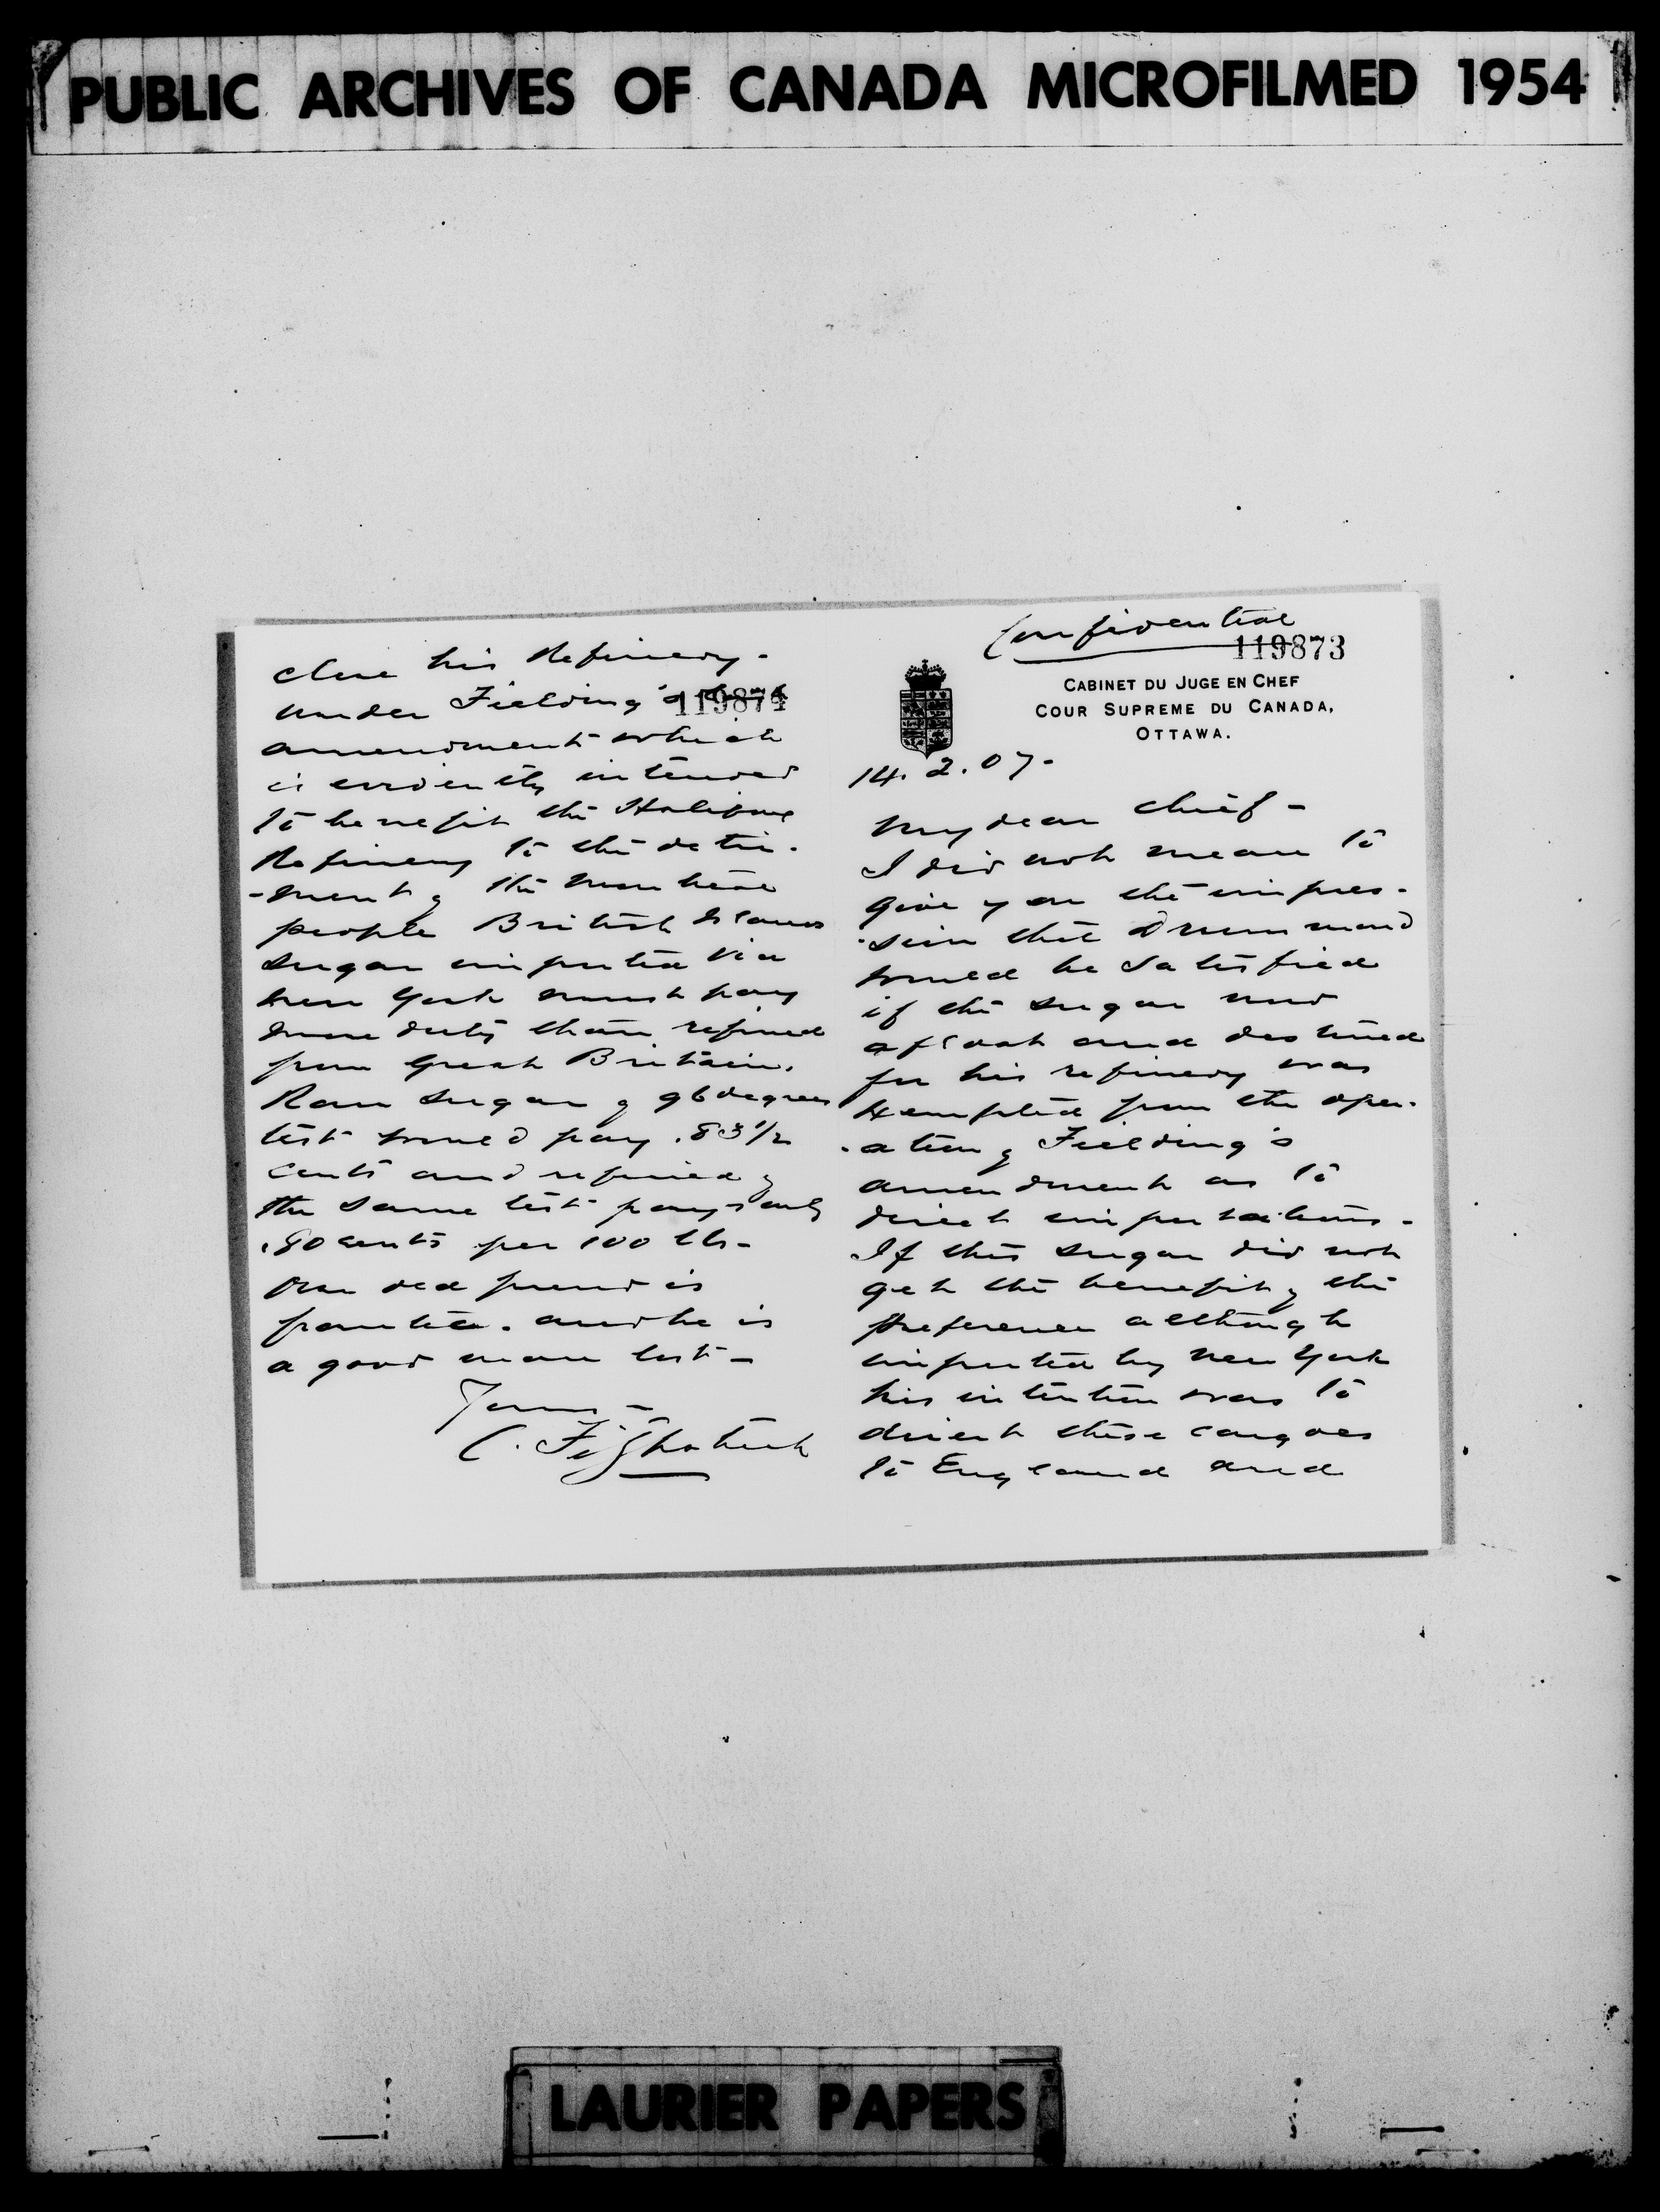 PUBLIC ARCHIVES OF CANADA MICROFILMED 1954
Confidential
119873
CABINET DU JUGE EN CHEF
COUR SUPREME DU CANADA,
OTTAWA.
14. 2. 07.
My dear Chief -
I did not mean to
give you the impres-
-sion that Drummond
would be satisfied
if the sugar now
afloat and destined
for his refinery was
exempted from the oper-
-ation of Fielding's
amendment as to
direct importations.
If this sugar did not
get the benefit of the
preference although
imported by New York
his intention was to
divert these cargoes
to England and
close his Refinery.
119874
Under Fielding's
amendment which
is evidently intended
to benefit the Halifax
Refinery to the detri-
-ment of the Montreal
people British Islands
sugar imported via
New York must pay
more duty than refined
from Great Britain.
Raw sugar of 96 degrees
test would pay .83 1/2
cents and refined of
the same test pays only
.80 cents per 100 lbs -
Our old friend is
frantic. and he is
a good man lost -
Yours -
C. Fitzpatrick
LAURIER PAPERS